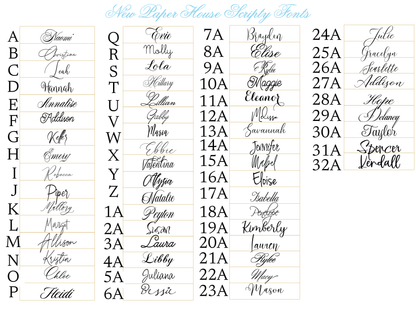 New Paper House Scripty Fonts
A Naomi
B Christina
C Leah
D Hannah
E Annalise
F Addison
G Kelly
H Emery
I Rebecca
J Piper
K Mallory
L Margot
M Allison
N Kristin
O Chloe
P Heidi
Q Evie
R Molly
S Lola
T Hillary
U Lillian
V Gabby
W Mason
X Ebbie
Y Valentina
Z Alyssa
Natalie
1A Peyton
2A Susan
3A Laura
4A Libby
5A Juliana
6A Bessie
7A Brayden
8A Elise
9A Kylie
10A Maggie
11A Eleanor
12A Melissa
13A Savannah
14A Jennifer
15A Mabel
16A Eloise
17A Isabella
18A Penelope
19A Kimberly
20A Lauren
21A Rylee
22A Macy
23A Mason
24A Julie
25A Gracelyn
26A Scarlette
27A Addison
28A Hope
29A Delaney
30A Taylor
31A Spencer
32A Kendall